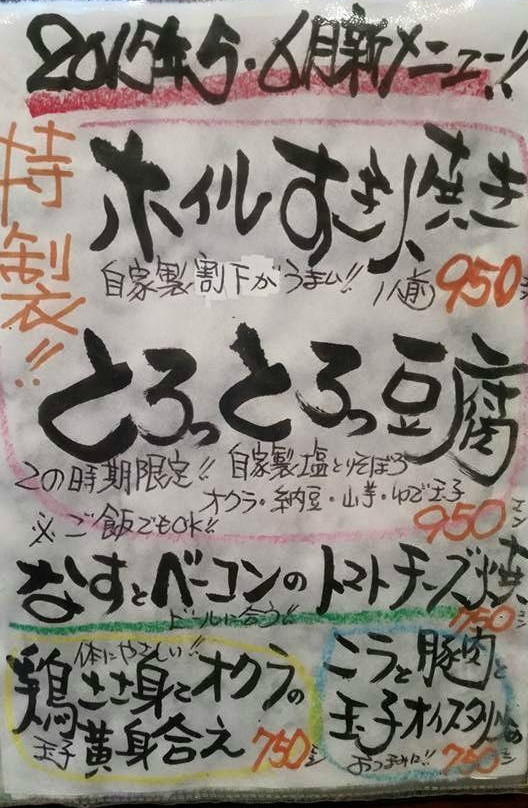 2015年5・6月新メニュー!!
特製!!
ホイルすき焼き
自家製割下がうまい!! 1人前 950エン
とろっとろっ豆腐
この時期限定!! 自家製塩とりそぼろ
オクラ・納豆・山芋・ゆで玉子
※ご飯でもOK!! 950エン
なすとベーコンのトマトチーズ焼
ビールに合う!! 750エン
体にやさしい!!
鶏ささ身とオクラの
玉子黄身合え 750エン
ニラと豚肉と
玉子オイスター炒め
おつまみに!! 750エン